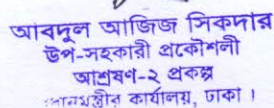 আবদুল আজিজ সিকদার
উপ-সহকারী প্রকৌশলী
আশ্রয়ণ-২ প্রকল্প
কার্যালয়, ঢাকা।